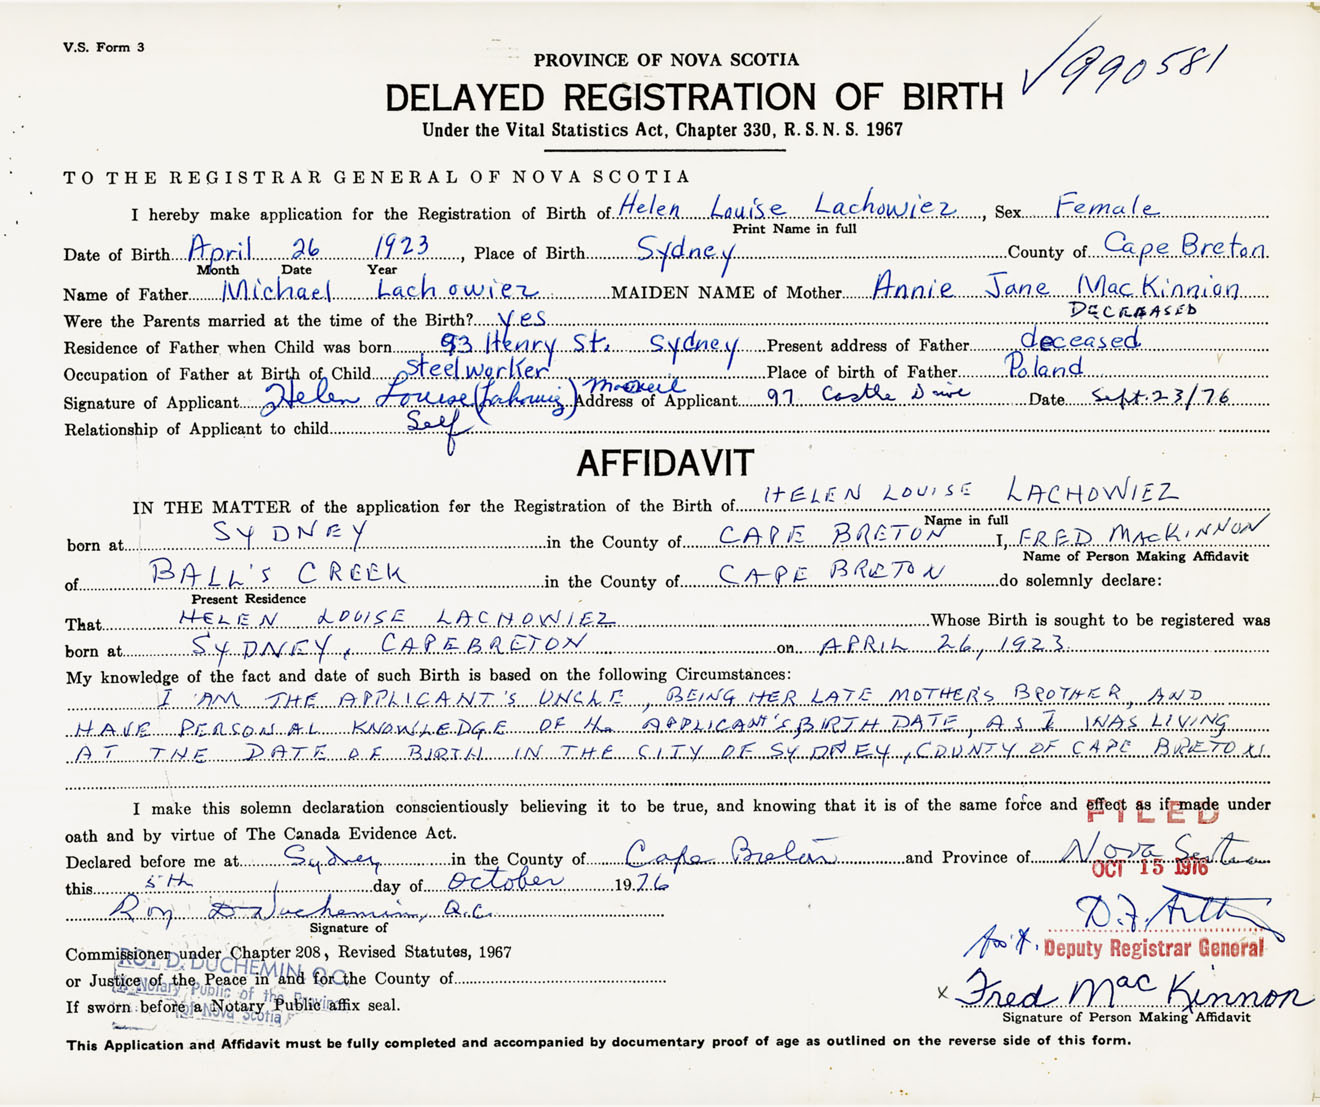 V.S. Form 3
✓990581
PROVINCE OF NOVA SCOTIA
DELAYED REGISTRATION OF BIRTH
Under the Vital Statistics Act, Chapter 330, R. S. N. S. 1967
TO THE REGISTRAR GENERAL OF NOVA SCOTIA
I hereby make application for the Registration of Birth of Helen Louise Lachowiez, Sex Female
Print Name in full
Date of Birth April 26 1923, Place of Birth Sydney County of Cape Breton
Month Date Year
Name of Father Michael Lachowiez MAIDEN NAME of Mother Annie Jane MacKinnion
DECEASED
Were the Parents married at the time of the Birth? yes
Residence of Father when Child was born 93 Henry St. Sydney Present address of Father deceased
Occupation of Father at Birth of Child Steelworker Place of birth of Father Poland
Signature of Applicant Helen Louise (Lahowiz) Address of Applicant 97 Castle Drive Date Sept. 23/76
Relationship of Applicant to child Self
AFFIDAVIT
IN THE MATTER of the application for the Registration of the Birth of HELEN LOUISE LACHOWIEZ
Name in full
born at SYDNEY in the County of CAPE BRETON I, FRED MACKINNON
Name of Person Making Affidavit
of BALL'S CREEK in the County of CAPE BRETON do solemnly declare:
Present Residence
That HELEN LOUISE LACHOWIEZ Whose Birth is sought to be registered was
born at SYDNEY, CAPE BRETON on APRIL 26, 1923
My knowledge of the fact and date of such Birth is based on the following Circumstances:
I AM THE APPLICANT'S UNCLE, BEING HER LATE MOTHER'S BROTHER, AND
HAVE PERSONAL KNOWLEDGE OF the APPLICANT'S BIRTH DATE, AS I WAS LIVING
AT THE DATE OF BIRTH IN THE CITY OF SYDNEY, COUNTY OF CAPE BRETON
I make this solemn declaration conscientiously believing it to be true, and knowing that it is of the same force and effect as if made under
FILED
oath and by virtue of The Canada Evidence Act.
Declared before me at Sydney in the County of Cape Breton and Province of Nova Scotia
OCT 15 1976
this 5th day of October 1976
Roy D Duchemin, Q.C.
Signature of
Commissioner under Chapter 208, Revised Statutes, 1967
Deputy Registrar General
ROY D. DUCHEMIN, Q.C.
or Justice of the Peace in and for the County of
a Notary Public of the Province
of Nova Scotia
If sworn before a Notary Public affix seal.
x Fred MacKinnon
Signature of Person Making Affidavit
This Application and Affidavit must be fully completed and accompanied by documentary proof of age as outlined on the reverse side of this form.